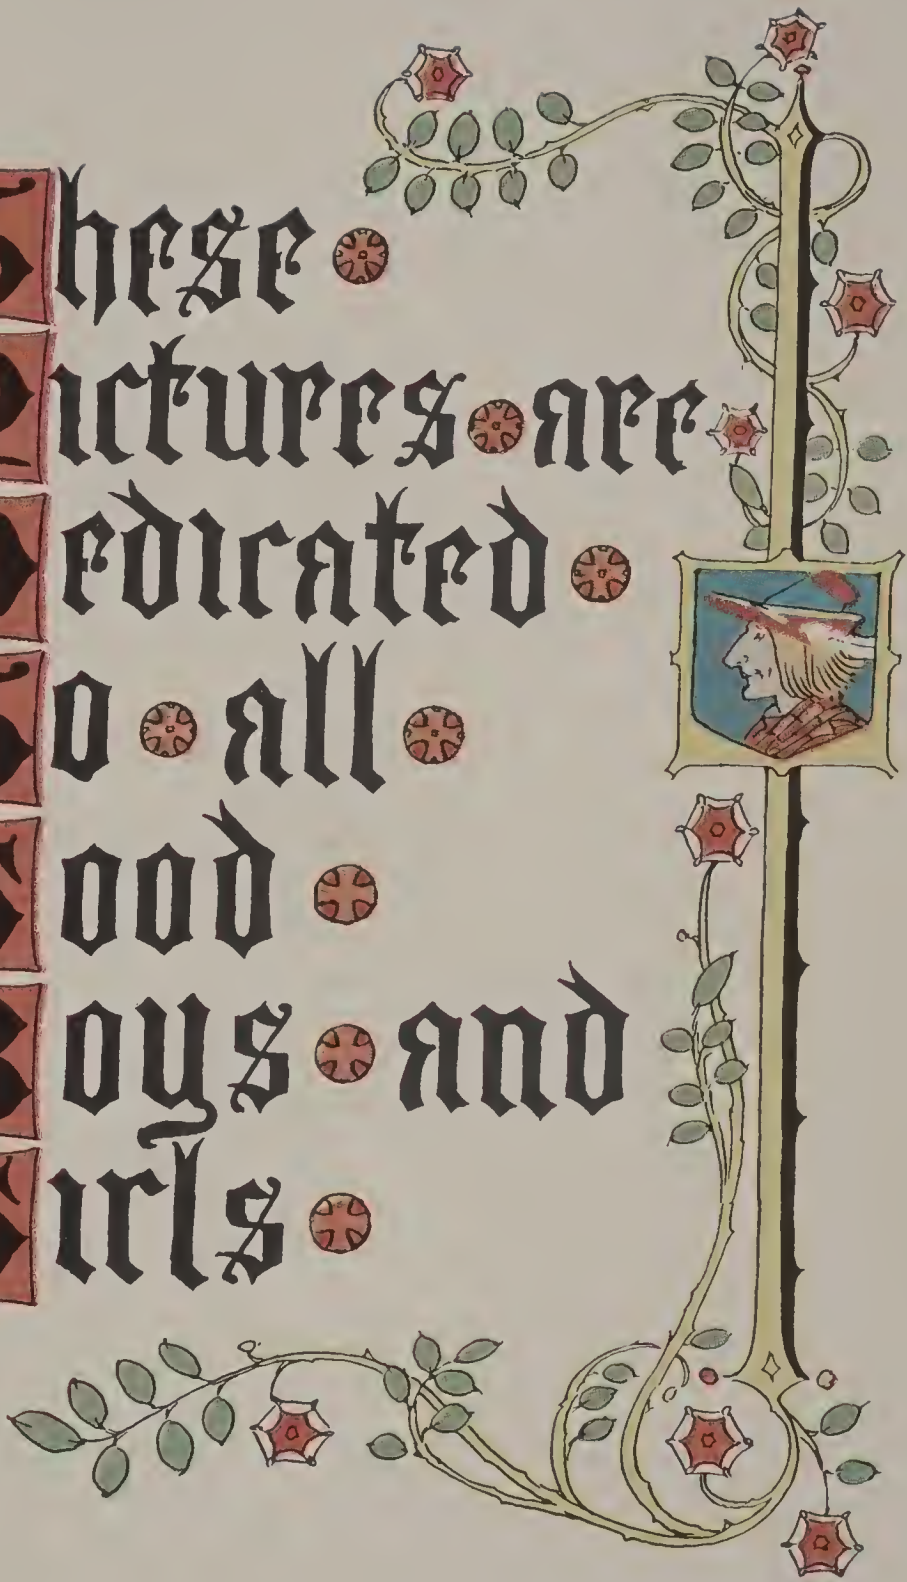 hese
ictures are
edicated
o all
ood
oys and
irls